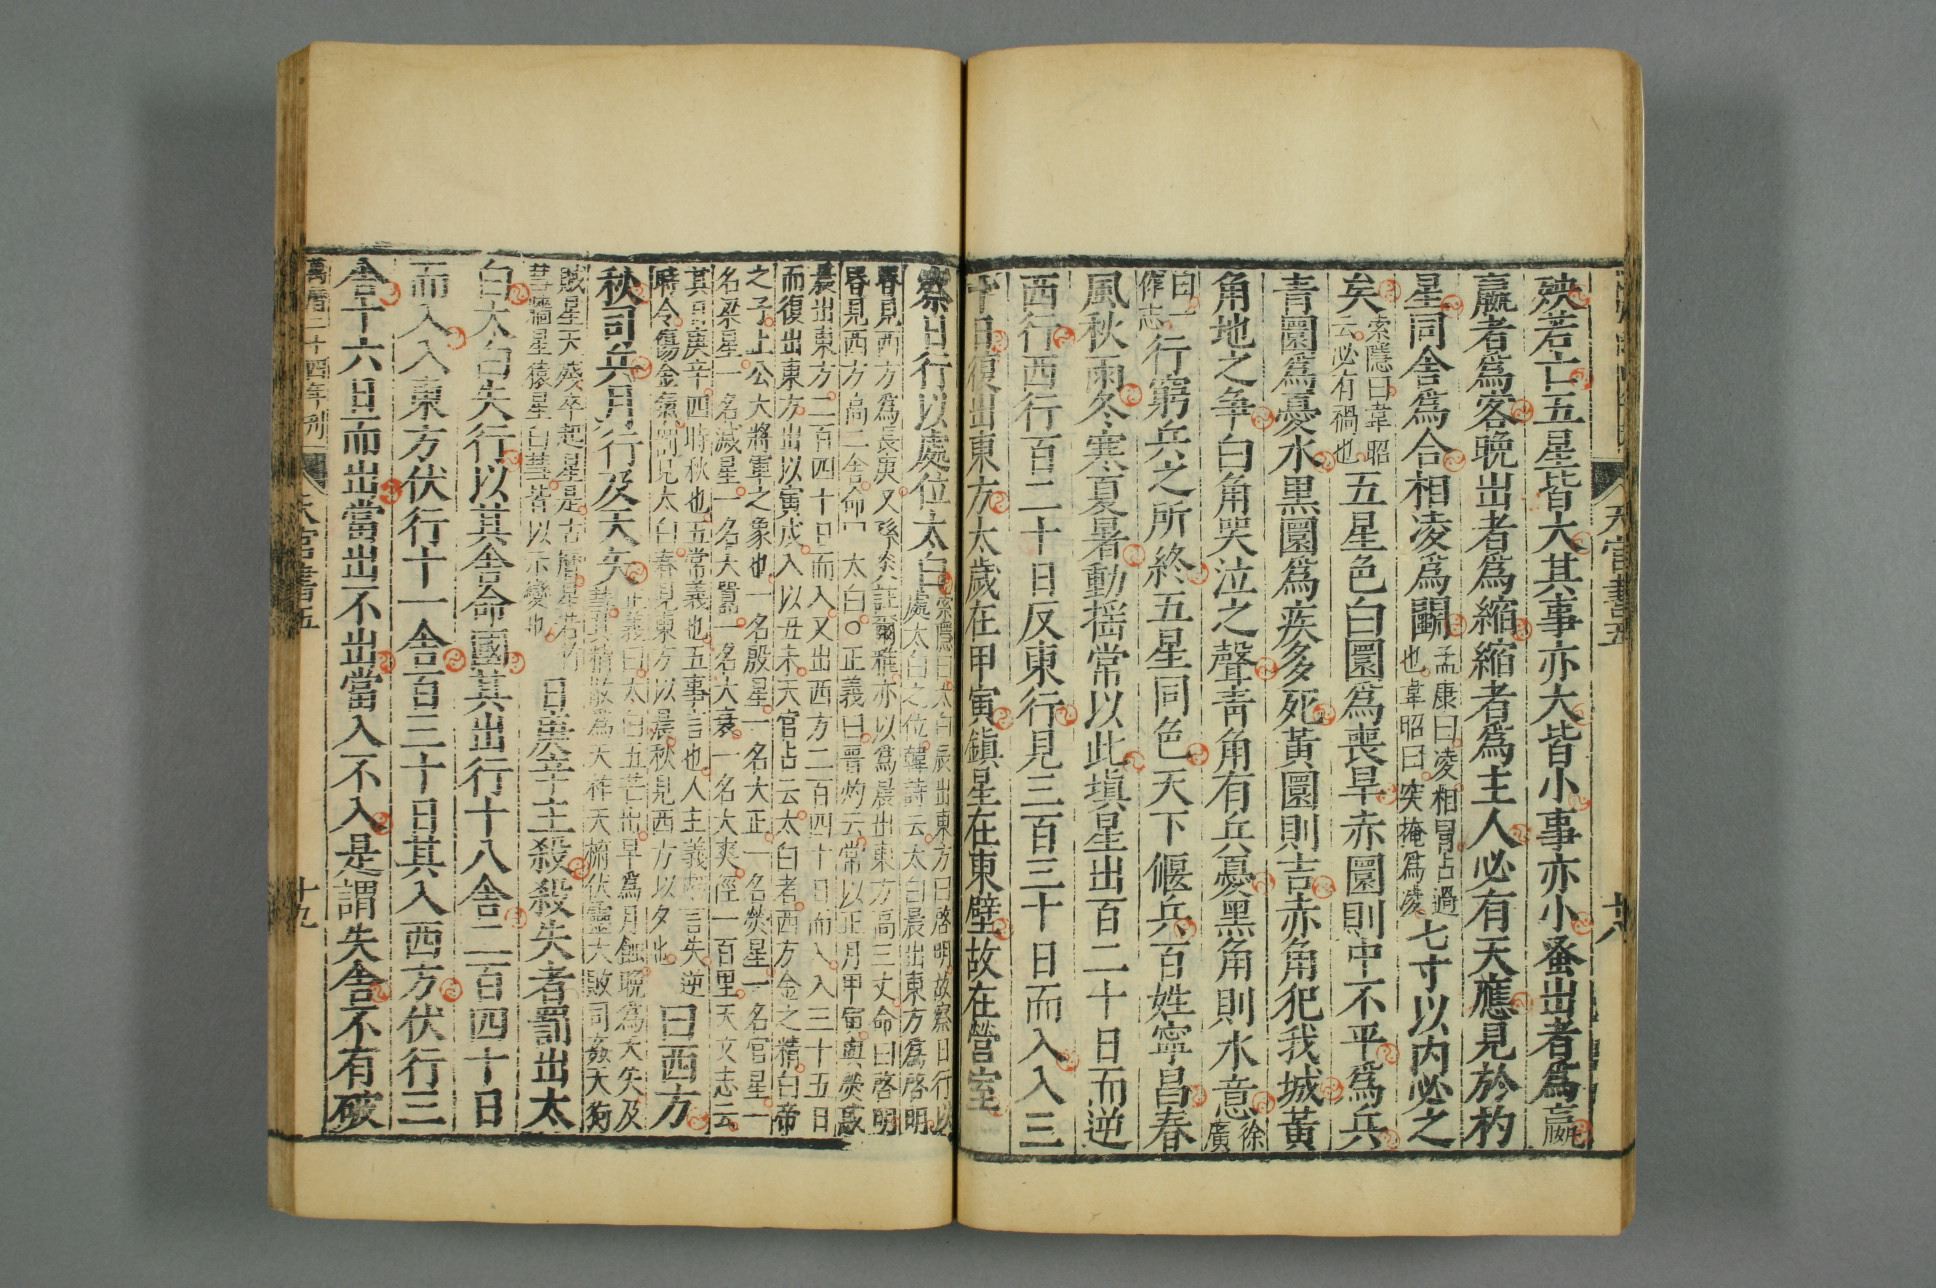 天官書五
十八
殃若亡五星皆大其事亦大皆小事亦小蚤出者爲贏
贏者爲客晚出者爲縮縮者爲主人必有天應見於杓
星同舍爲合相凌爲鬭孟康曰凌相冒占過
也韋昭曰突掩爲凌七寸以内必之
矣索隱曰韋昭
云必有禍也五星色白圜爲喪旱赤圜則中不平爲兵
青圜爲憂水黑圜爲疾多死黃圜則吉赤角犯我城黃
角地之爭白角哭泣之聲青角有兵憂黑角則水意徐
廣
曰一
作志行窮兵之所終五星同色天下偃兵百姓寧昌春
風秋雨冬寒夏暑動搖常以此塡星出百二十日而逆
西行西行百二十日反東行見三百三十日而入入三
十日復出東方太歲在甲寅鎮星在東壁故在營室
察日行以處位太白索隱曰太白辰出東方曰啓明故察日行以
處太白之位韓詩云太白晨出東方爲啓明
春見西方爲長庚又孫炎註爾雅亦以爲晨出東方高三丈命曰啓明
昏見西方高三舍命曰太白○正義曰晋灼云常以正月甲寅與熒惑
晨出東方二百四十日而入又出西方二百四十日而入入三十五日
而復出東方出以寅戌入以丑未天官占云太白者西方金之精白帝
之子上公大將軍之象也一名殷星一名大正一名熒星一名官星一
名梁星一名滅星一名大囂一名大衰一名大爽徑一百里天文志云
其日庚辛四時秋也五常義也五事言也人主義虧言失逆
時令傷金氣罰見太白春見東方以晨秋見西方以夕也曰西方
秋司兵月行及天矢正義曰太白五芒出早爲月蝕晚爲天矢及
彗其精散爲天杵天柎伏靈大敗司姦天狗
賊星天殘卒起星是古曆星若竹
彗牆星猿星白雚皆以示變也日庚辛主殺殺失者罰出太
白太白失行以其舍命國其出行十八舍二百四十日
而入入東方伏行十一舍百三十日其入西方伏行三
舍十六日而出當出不出當入不入是謂失舍不有破
萬曆二十四年刊
天官書五
十九